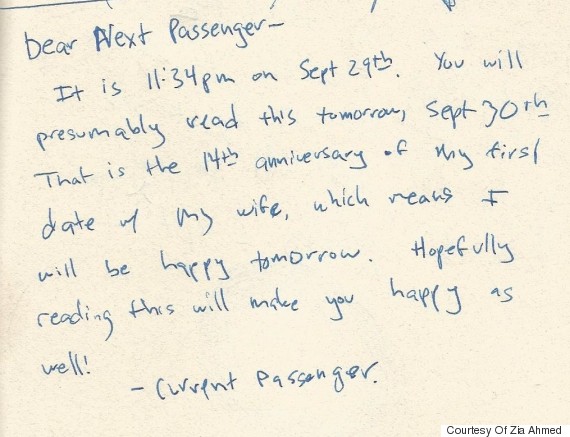 Dear Next Passenger-
It is 11:34pm on Sept 29th. You will
presumably read this tomorrow, Sept 30th
That is the 14th anniversary of my first
date w/ my wife, which means I
will be happy tomorrow. Hopefully
reading this will make you happy as
well!
- Current Passenger.
Courtesy Of Zia Ahmed